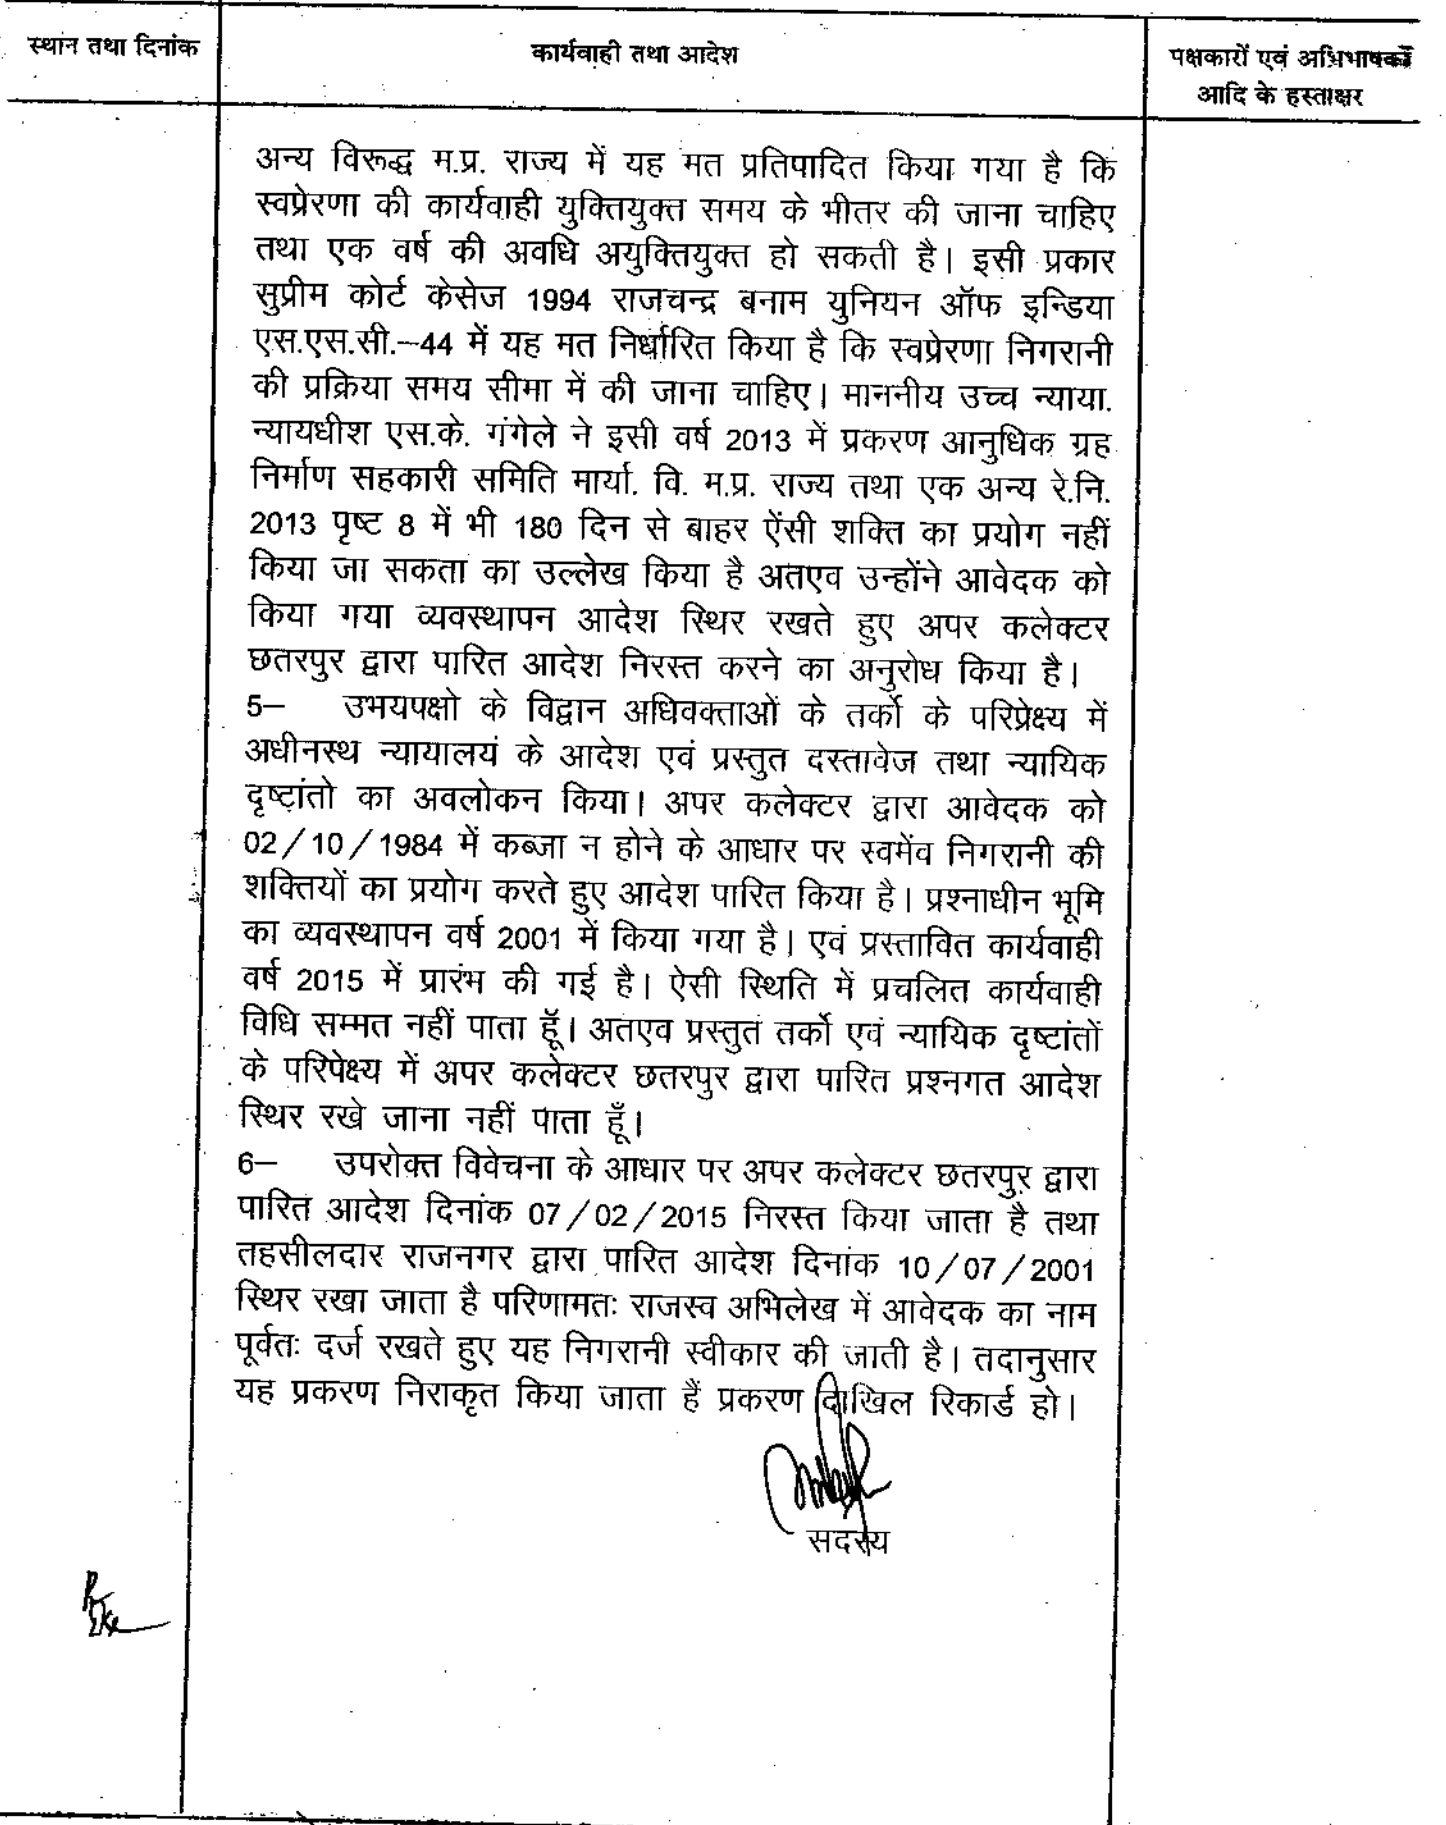 स्थान तथा दिनांक
कार्यवाही तथा आदेश
पक्षकारों एवं अभिभाषकों
आदि के हस्ताक्षर
अन्य विरूद्ध म.प्र. राज्य में यह मत प्रतिपादित किया गया है कि
स्वप्रेरणा की कार्यवाही युक्तियुक्त समय के भीतर की जाना चाहिए
तथा एक वर्ष की अवधि अयुक्तियुक्त हो सकती है। इसी प्रकार
सुप्रीम कोर्ट केसेज 1994 राजचन्द्र बनाम युनियन ऑफ इन्डिया
एस.एस.सी.–44 में यह मत निर्धारित किया है कि स्वप्रेरणा निगरानी
की प्रक्रिया समय सीमा में की जाना चाहिए। माननीय उच्च न्याया.
न्यायधीश एस.के. गंगेले ने इसी वर्ष 2013 में प्रकरण आनुधिक ग्रह
निर्माण सहकारी समिति मार्या. वि. म.प्र. राज्य तथा एक अन्य रे.नि.
2013 पृष्ट 8 में भी 180 दिन से बाहर ऐंसी शक्ति का प्रयोग नहीं
किया जा सकता का उल्लेख किया है अतएव उन्होंने आवेदक को
किया गया व्यवस्थापन आदेश स्थिर रखते हुए अपर कलेक्टर
छतरपुर द्वारा पारित आदेश निरस्त करने का अनुरोध किया है।
5– उभयपक्षो के विद्वान अधिवक्ताओं के तर्को के परिप्रेक्ष्य में
अधीनस्थ न्यायालयं के आदेश एवं प्रस्तुत दस्तावेज तथा न्यायिक
दृष्टांतो का अवलोकन किया। अपर कलेक्टर द्वारा आवेदक को
02/10/1984 में कब्जा न होने के आधार पर स्वमेंव निगरानी की
शक्तियों का प्रयोग करते हुए आदेश पारित किया है। प्रश्नाधीन भूमि
का व्यवस्थापन वर्ष 2001 में किया गया है। एवं प्रस्तावित कार्यवाही
वर्ष 2015 में प्रारंभ की गई है। ऐसी स्थिति में प्रचलित कार्यवाही
विधि सम्मत नहीं पाता हूॅ। अतएव प्रस्तुत तर्को एवं न्यायिक दृष्टांतों
के परिपेक्ष्य में अपर कलेक्टर छतरपुर द्वारा पारित प्रश्नगत आदेश
स्थिर रखे जाना नहीं पाता हूँ।
6– उपरोक्त विवेचना के आधार पर अपर कलेक्टर छतरपुर द्वारा
पारित आदेश दिनांक 07/02/2015 निरस्त किया जाता है तथा
तहसीलदार राजनगर द्वारा पारित आदेश दिनांक 10/07/2001
स्थिर रखा जाता है परिणामतः राजस्व अभिलेख में आवेदक का नाम
पूर्वतः दर्ज रखते हुए यह निगरानी स्वीकार की जाती है। तदानुसार
यह प्रकरण निराकृत किया जाता हैं प्रकरण दाखिल रिकार्ड हो।
सदस्य